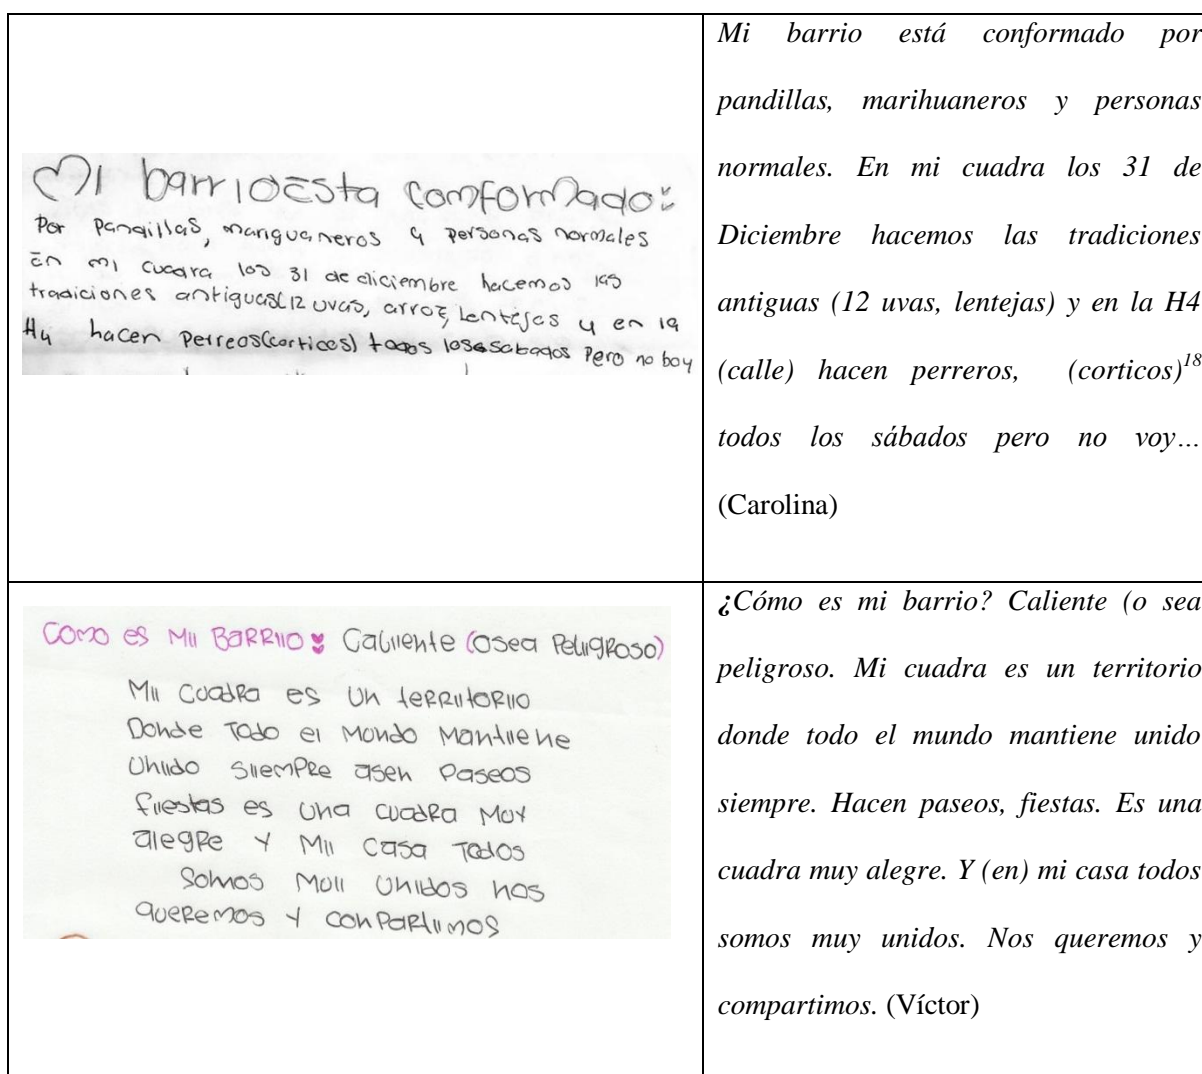 Mi barrio Esta comformado:
Por pandillas, mariguaneros y personas normales
En mi cuadra los 31 de diciembre hacemos las
tradiciones antiguas(12 uvas, arroz, Lentejas y en la
H4 hacen perreos(corticos) todos los sabados pero no boy
Mi barrio está conformado por
pandillas, marihuaneros y personas
normales. En mi cuadra los 31 de
Diciembre hacemos las tradiciones
antiguas (12 uvas, lentejas) y en la H4
(calle) hacen perreros, (corticos)18
todos los sábados pero no voy…
(Carolina)
Como es Mi BaRRio: Caliente (osea PeligRoso)
Mi cuadRa es un teRRitoRio
Donde Todo el Mundo Mantiene
Unido SiemPRe asen Paseos
fiestas es una cuadRa Muy
alegRe Y Mi casa Todos
Somos Moi Unidos nos
queRemos Y conPaRtimos
¿Cómo es mi barrio? Caliente (o sea
peligroso. Mi cuadra es un territorio
donde todo el mundo mantiene unido
siempre. Hacen paseos, fiestas. Es una
cuadra muy alegre. Y (en) mi casa todos
somos muy unidos. Nos queremos y
compartimos. (Víctor)